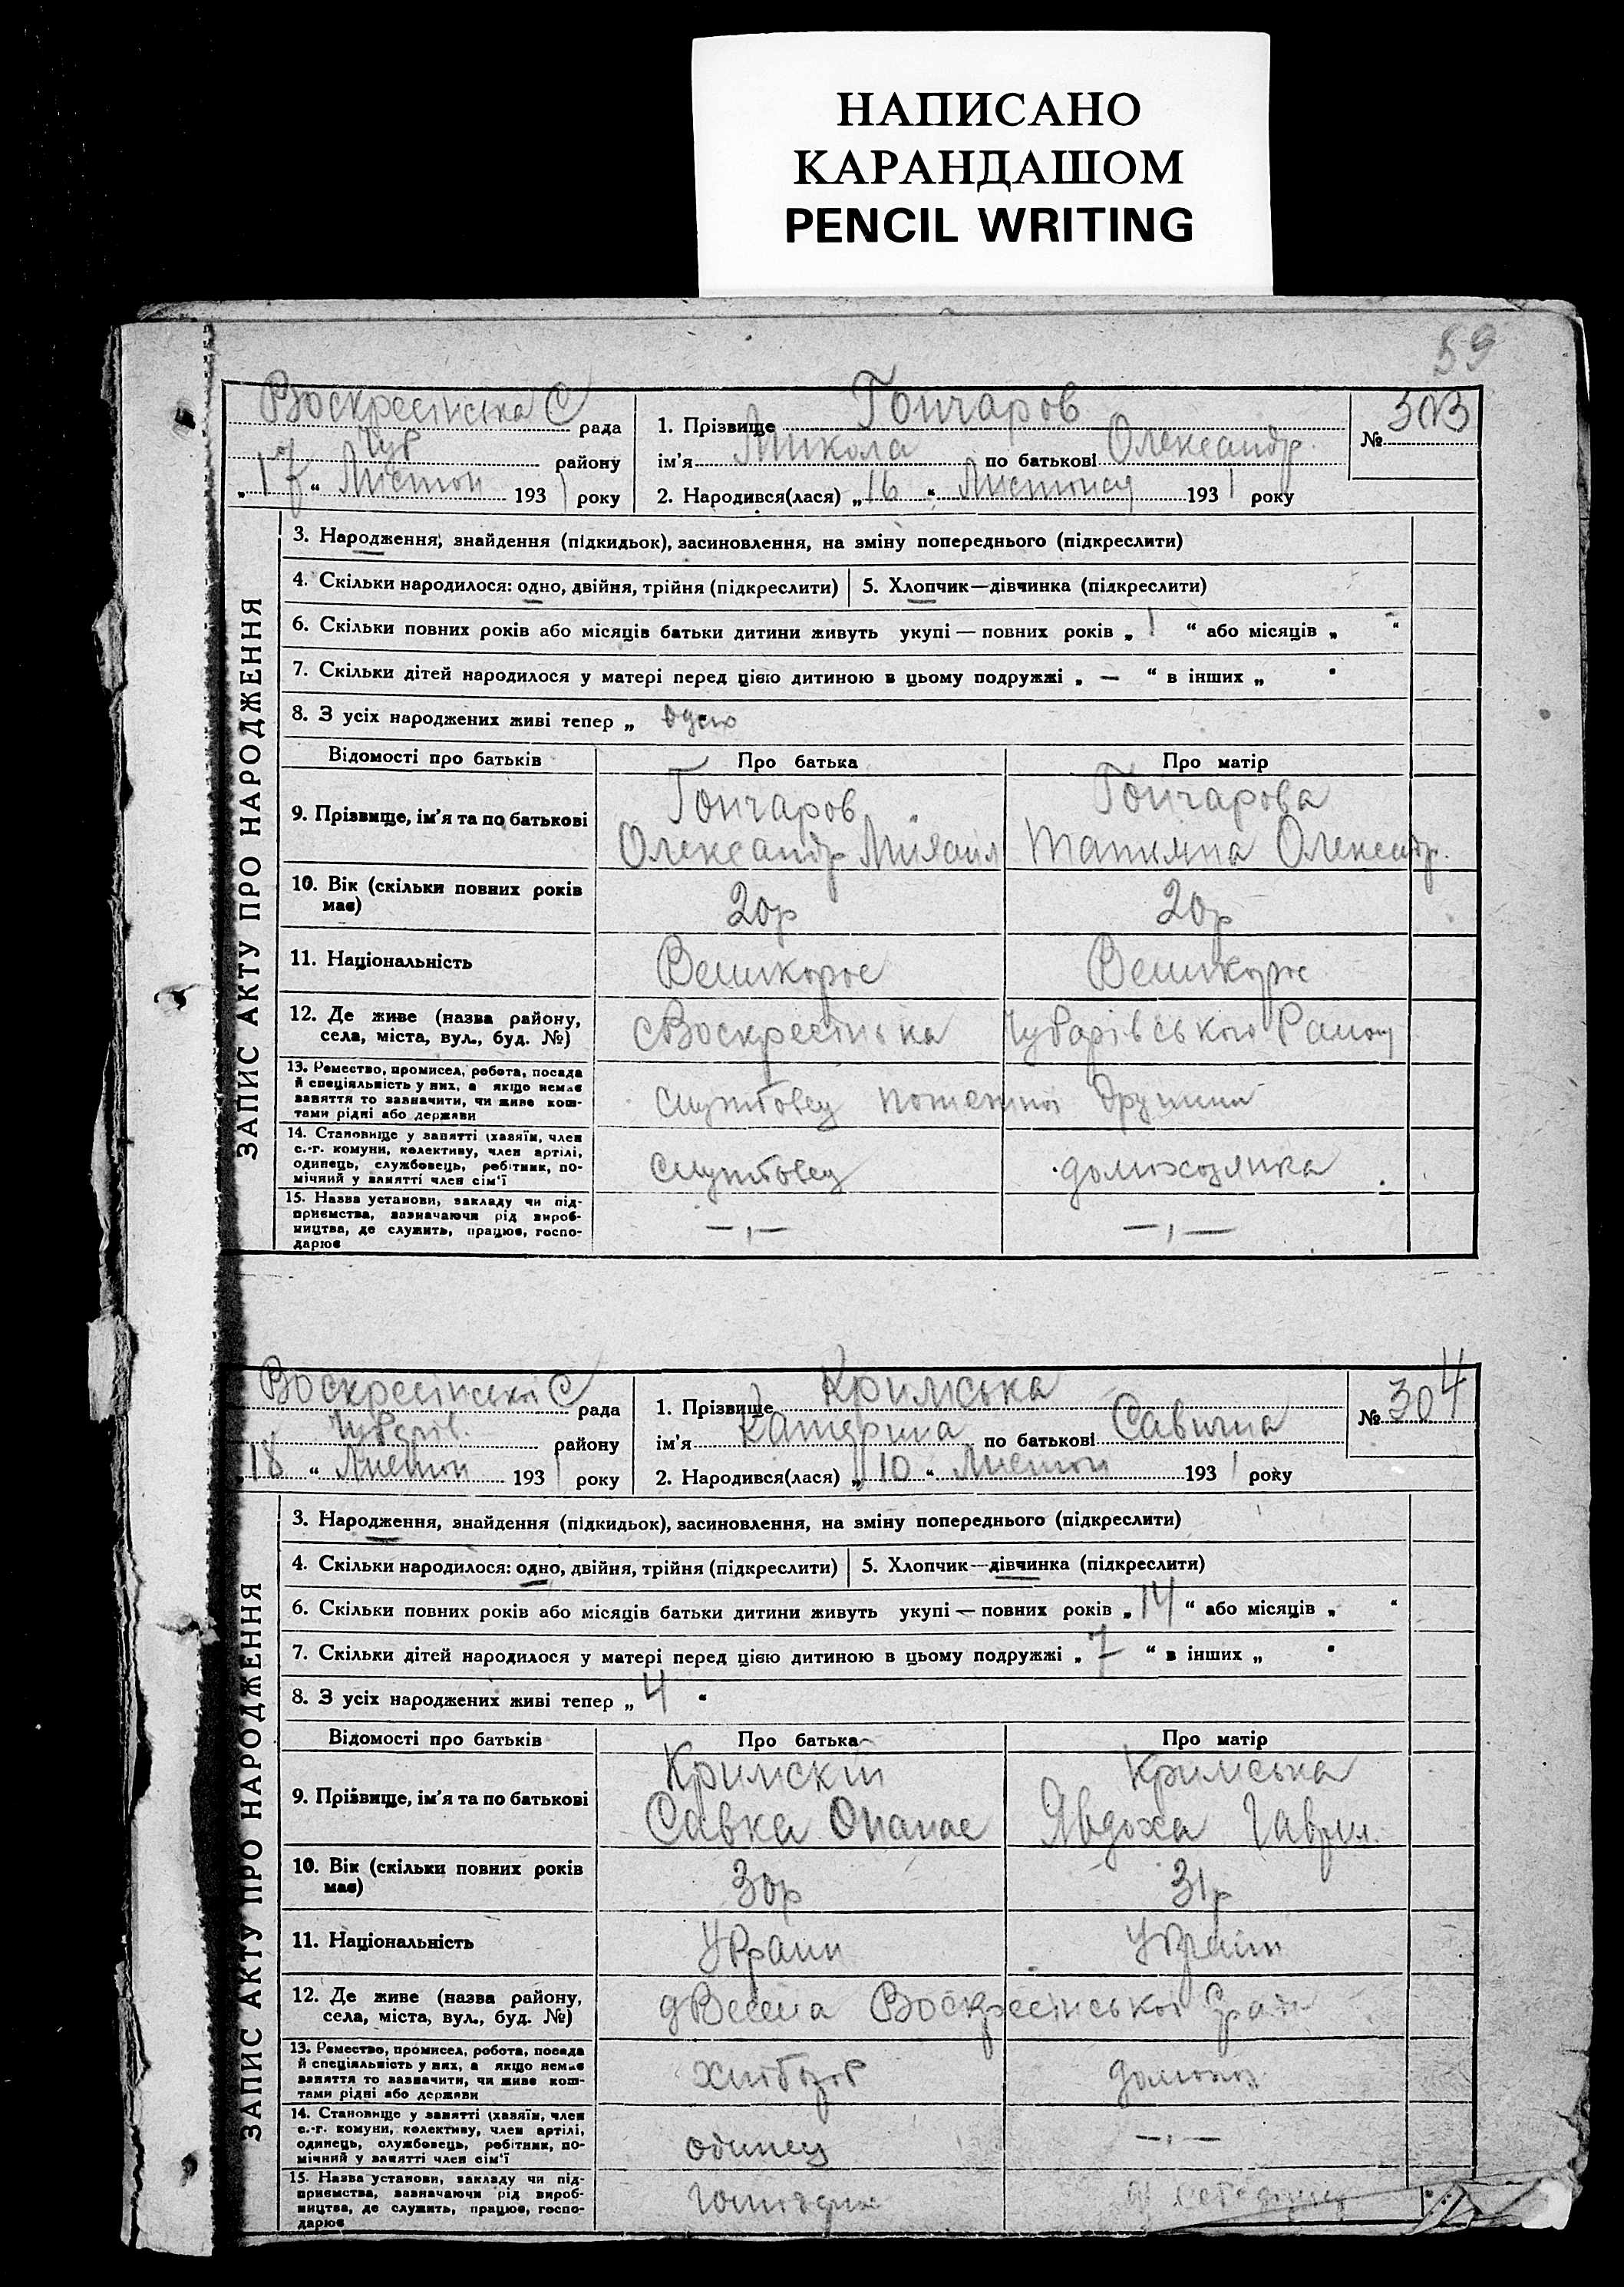 НАПИСАНО
КАРАНДАШОМ
PENCIL WRITING
59
Воскресінська С рада
Чув району
„17“ Листоп 1931 року
1. Прізвище Гончаров
ім'я Микола по батькові Олександр.
2. Народився(лася) „16“ Листопад 1931 року
№ 303
ЗАПИС АКТУ ПРО НАРОДЖЕННЯ
3. Народження, знайдення (підкидьок), засиновлення, на зміну попереднього (підкреслити)
4. Скільки народилося: одно, двійня, трійня (підкреслити) 5. Хлопчик—дівчинка (підкреслити)
6. Скільки повних років або місяців батьки дитини живуть укупі — повних років „1“ або місяців „ “
7. Скільки дітей народилося у матері перед цією дитиною в цьому подружжі „ — “ в інших „ “
8. З усіх народжених живі тепер „ одно
Відомості про батьків Про батька Про матір
9. Прізвище, ім'я та по батькові
Гончаров Гончарова
Олександр Михаил Татияна Олександр.
10. Вік (скільки повних років має) 20р 20р
11. Національність Великорос Великорос
12. Де живе (назва району, села, міста, вул., буд. №)
с Воскресінька Чубарівського Району
13. Ремество, промисел, робота, посада й спеціяльність у них, а якщо немає заняття то зазначити, чи живе коштами рідні або держави
службовец дружини
14. Становище у занятті (хазяїн, член с.-г. комуни, колективу, член артілі, одинець, службовець, робітник, помічний у занятті член сім'ї
службовец домохозяика
15. Назва установи, закладу чи підприємства, зазначаючи рід виробництва, де служить, працює, господарює
—„— —„—
Воскресінська С рада
Чубарів. району
„18“ Листоп 1931 року
1. Прізвище Кримська
ім'я Катерина по батькові Савична
2. Народився(лася) „10“ Листоп 1931 року
№ 304
ЗАПИС АКТУ ПРО НАРОДЖЕННЯ
3. Народження, знайдення (підкидьок), засиновлення, на зміну попереднього (підкреслити)
4. Скільки народилося: одно, двійня, трійня (підкреслити) 5. Хлопчик—дівчинка (підкреслити)
6. Скільки повних років або місяців батьки дитини живуть укупі — повних років „14“ або місяців „ “
7. Скільки дітей народилося у матері перед цією дитиною в цьому подружжі „7“ в інших „ “
8. З усіх народжених живі тепер „4“
Відомості про батьків Про батька Про матір
9. Прізвище, ім'я та по батькові
Кримский Кримська
Савка Опанас Явдоха Гаврил.
10. Вік (скільки повних років має) 30р 31р
11. Національність Україн Україн
12. Де живе (назва району, села, міста, вул., буд. №)
Весела Воскресінської
13. Ремество, промисел, робота, посада й спеціяльність у них, а якщо немає заняття то зазначити, чи живе коштами рідні або держави
хлібороб домохоз
14. Становище у занятті (хазяїн, член с.-г. комуни, колективу, член артілі, одинець, службовець, робітник, помічний у занятті член сім'ї
одинец —„—
15. Назва установи, закладу чи підприємства, зазначаючи рід виробництва, де служить, працює, господарює